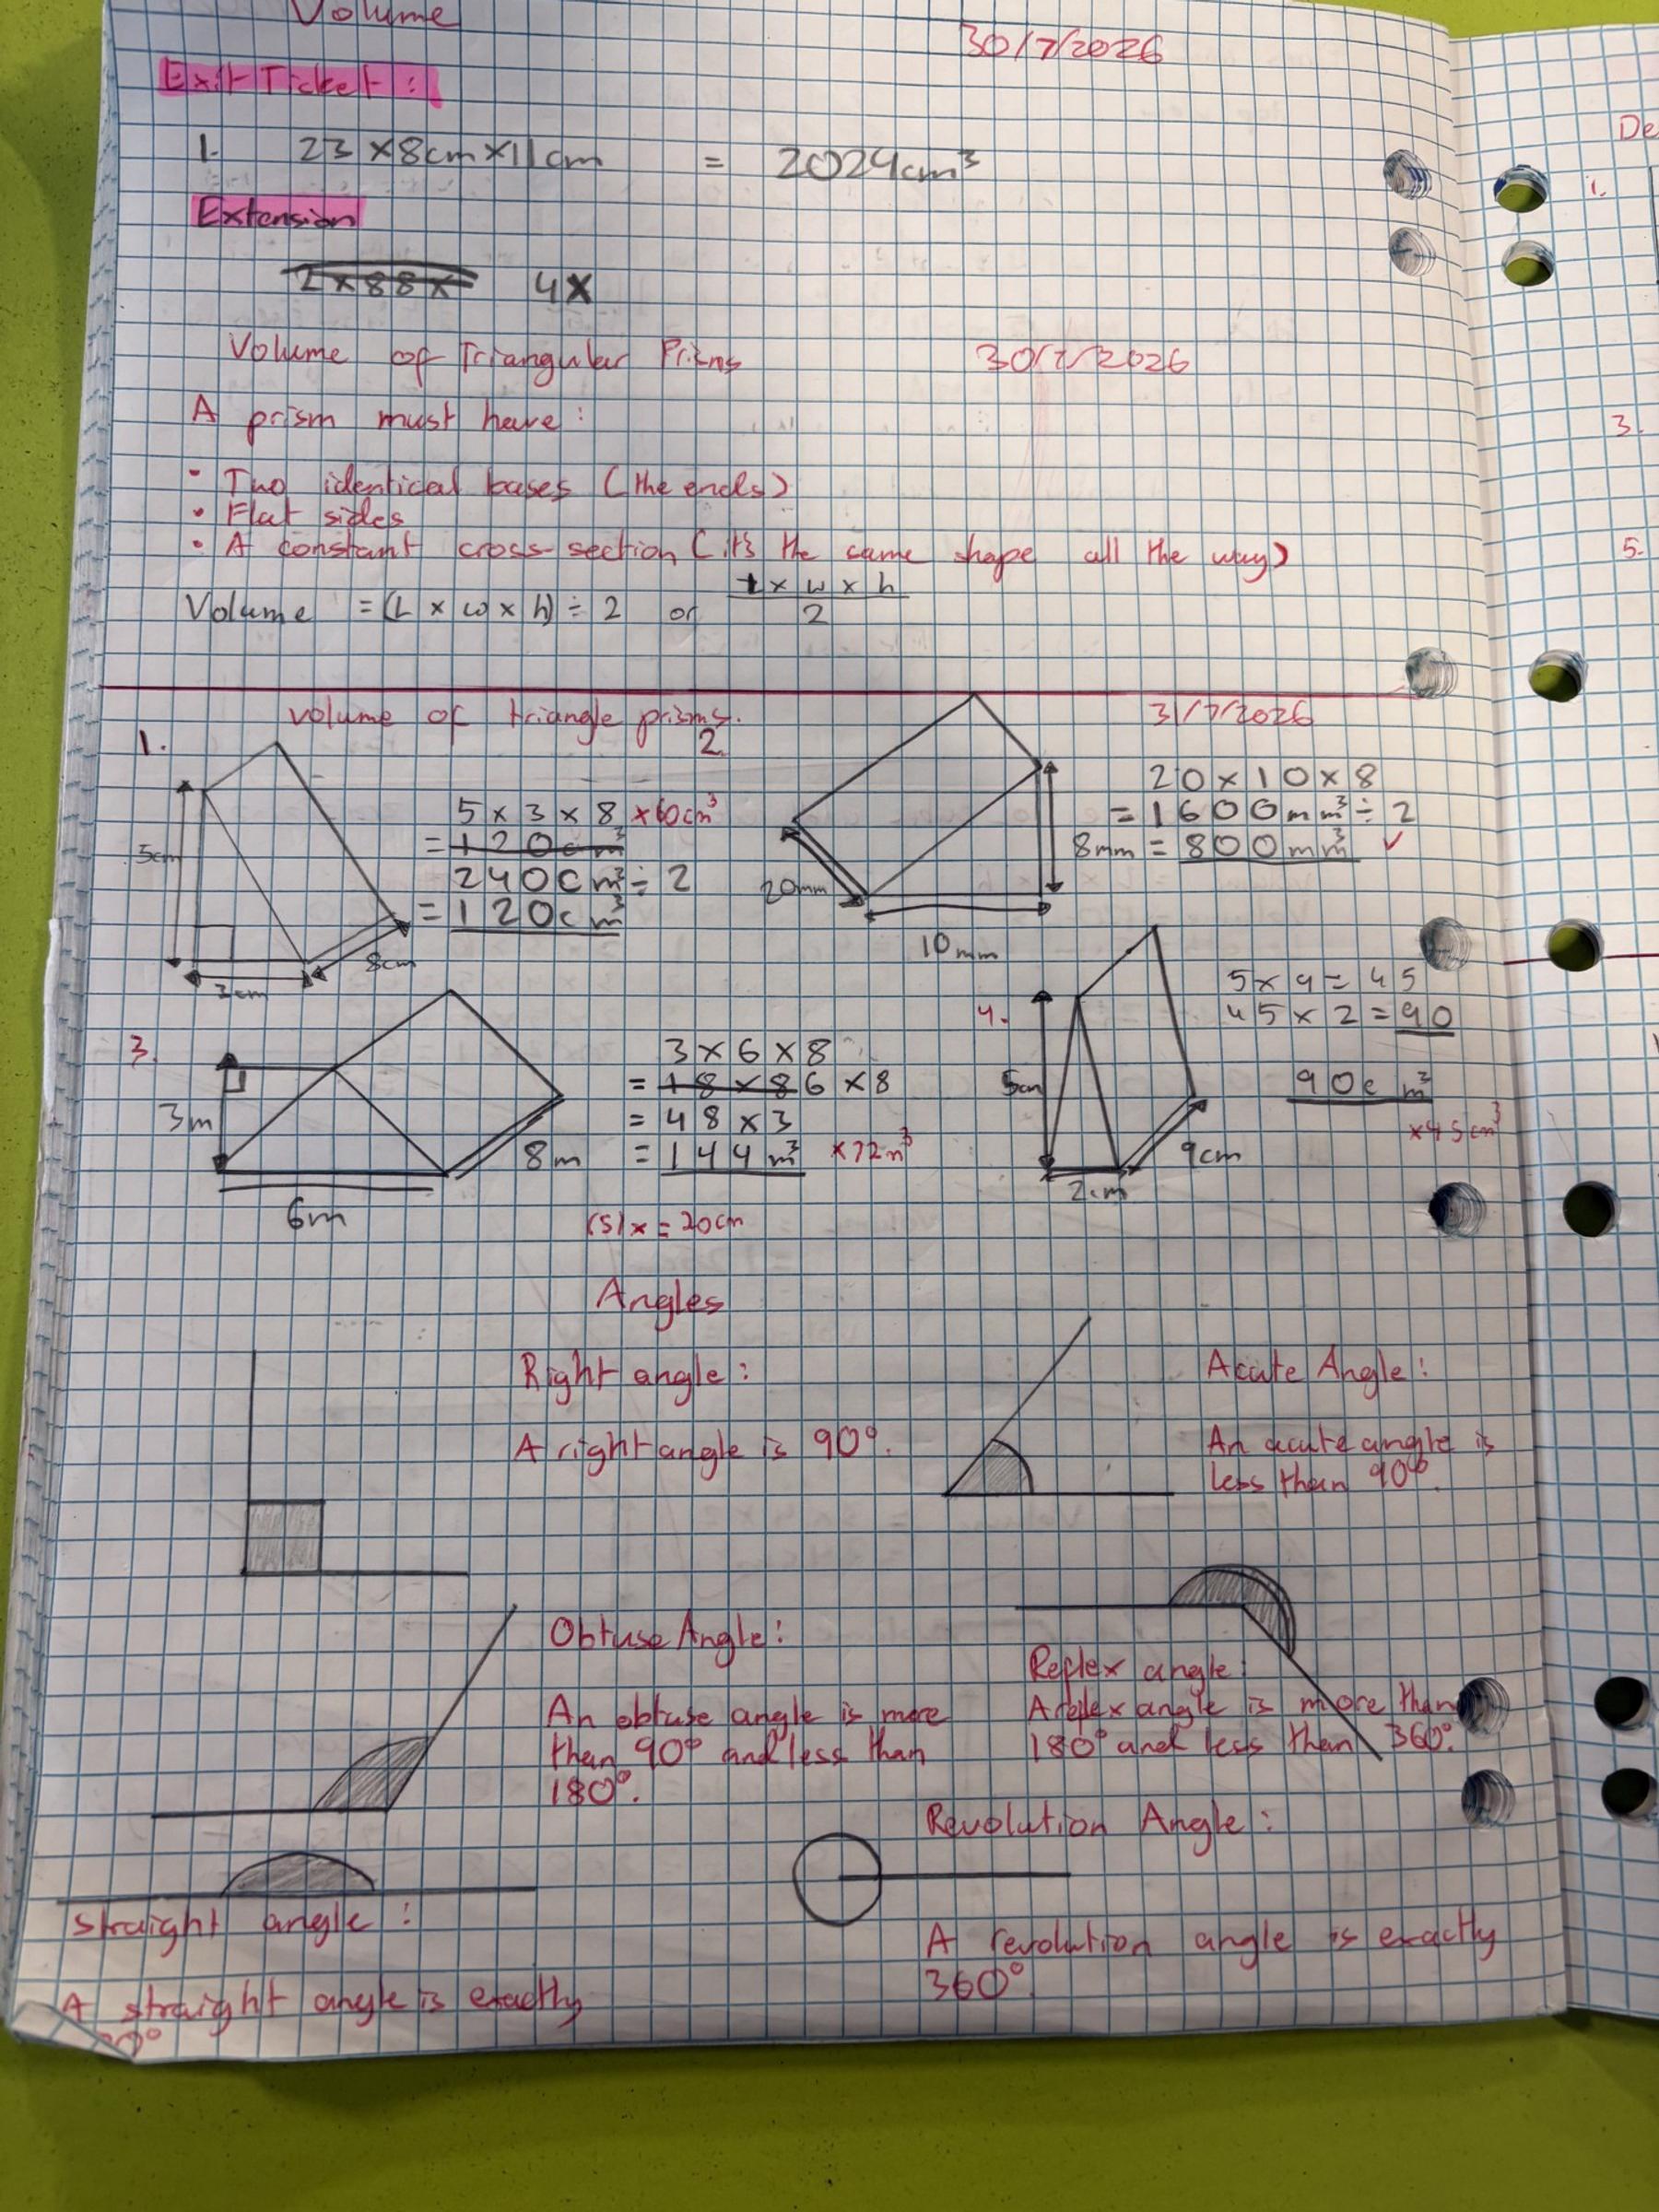 Volume
30/7/2026
Exit Ticket:
1. 23 x 8cm x 11cm = 2024cm³
Extension
2x88x 4x
Volume of Triangular Prisms 30/7/2026
A prism must have:
• Two identical bases (the ends)
• Flat sides
• A constant cross-section (it's the same shape all the way)
Volume = (L x w x h) ÷ 2 or L x w x h
2
volume of triangle prisms. 31/7/2026
1.
5cm
3cm
8cm
5 x 3 x 8 x60cm³
= 120cm³
240cm³ ÷ 2
= 120cm³
2.
20mm
10mm
8mm
20 x 10 x 8
= 1600mm³ ÷ 2
= 800mm³ ✓
3.
3m
6m
8m
3 x 6 x 8
= 18 x 8 6 x 8
= 48 x 3
= 144m³ x72m³
4.
5cm
2cm
9cm
5 x 9 = 45
45 x 2 = 90
90cm³
x45cm³
(5) x = 20cm
Angles
Right angle:
A right angle is 90°.
Acute Angle:
An acute angle is
less than 90°.
Obtuse Angle:
An obtuse angle is more
than 90° and less than
180°.
Reflex angle:
A reflex angle is more than
180° and less than 360°.
straight angle:
A straight angle is exactly
Revolution Angle:
A revolution angle is exactly
360°.
De
1.
3.
5.